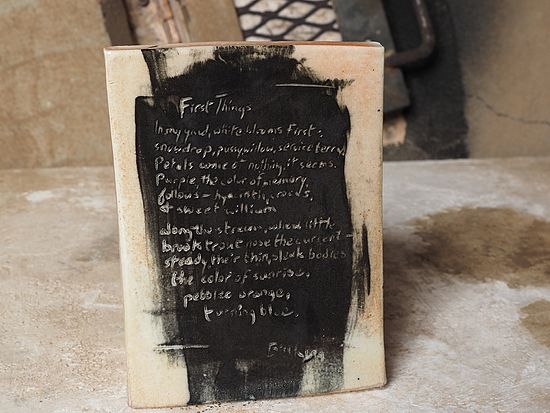 First Things
In my yard, white blooms first:
snowdrop, pussywillow, service
Petals come of nothing, it seems.
Purple, the color of memory
follows — hyacinth,
& sweet william
along the stream, where little
brook trout nose the current —
steady, their thin, sleek bodies
the color of sunrise,
pebbles orange,
turning blue.